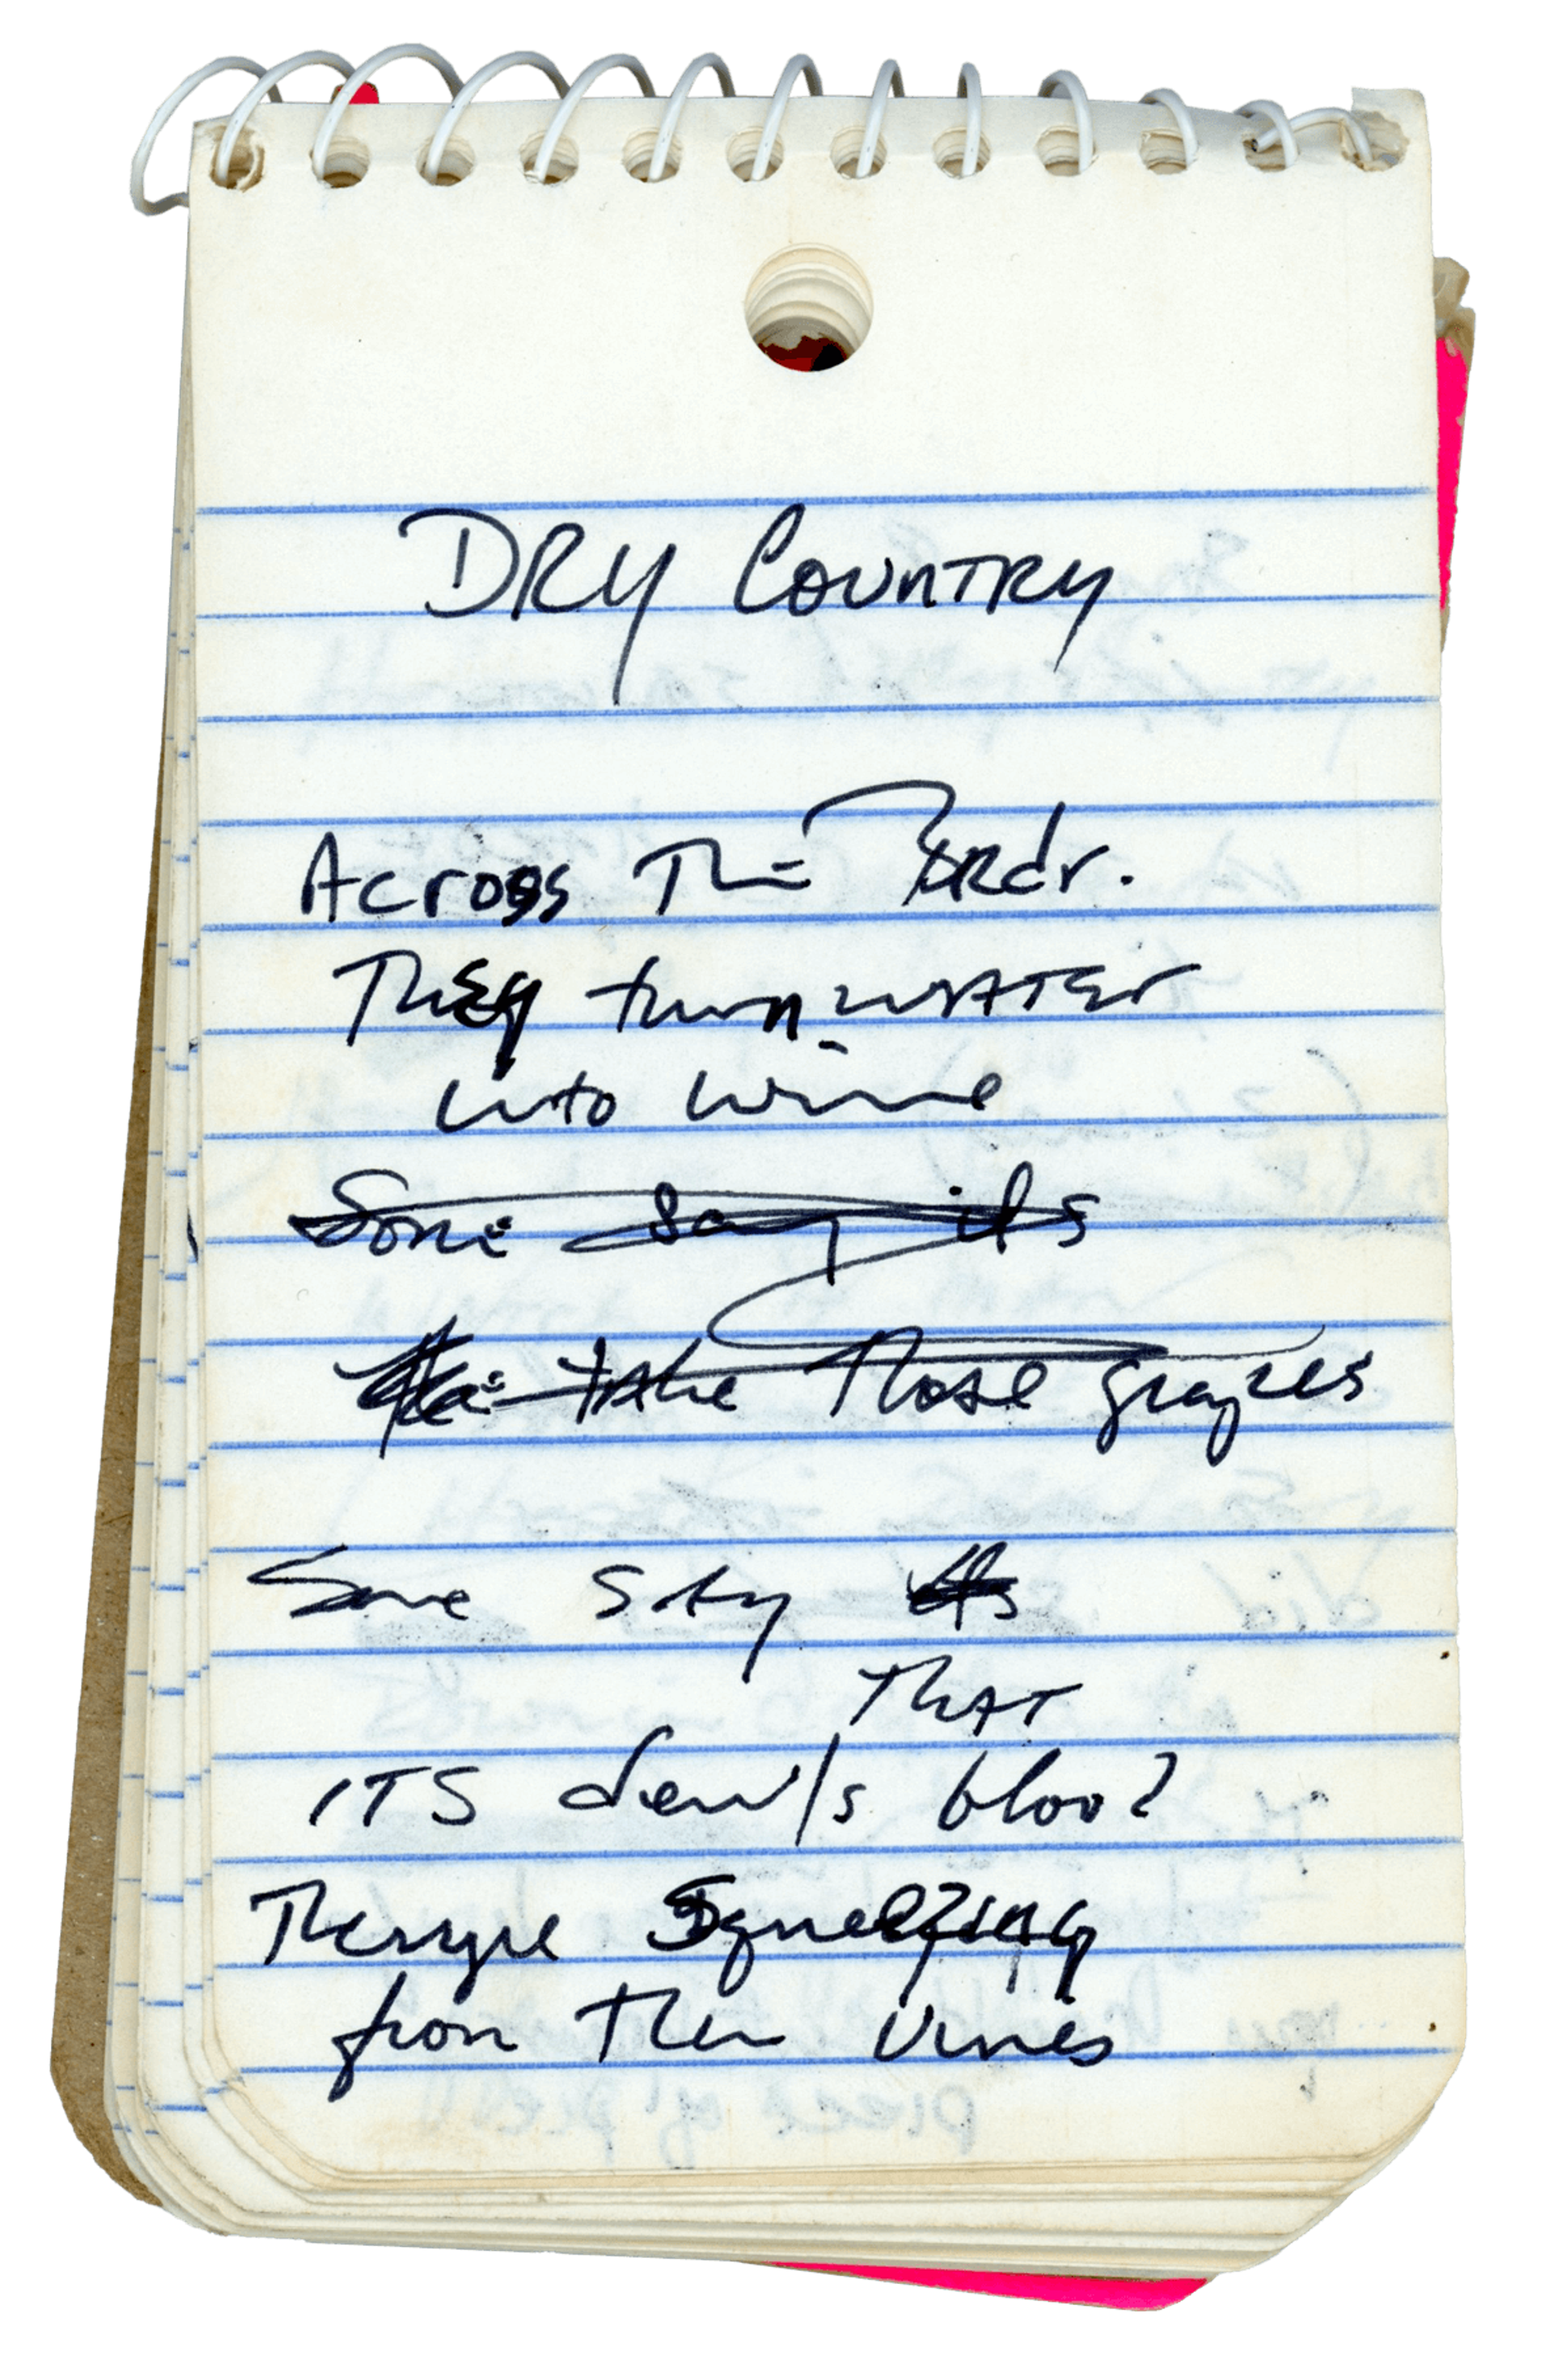 DRY COUNTRY
Across The Bordr.
They turn water
into wine
Some say its
take those grapes
Some say its
THAT
ITS devils blood
Theryre Squeezing
from Then vines